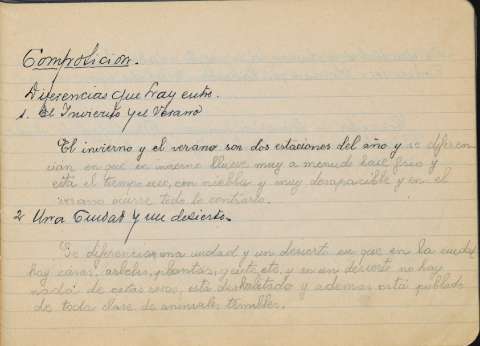 Composicion.
Diferencias que hay entre.
1. El Invierno y el Verano
El invierno y el verano son dos estaciones del año y se diferen
cian en que en invierno llueve muy a menudo hace frio y
está el tiempo seco, con nieblas y muy desapacible y en el
verano ocurre todo lo contrario.
2 Una Ciudad y un desierto.
Se diferencian una ciudad y un desierto en que en la ciudad
hay casas, arboles, plantas, gente, etc, y en un desierto no hay
nada de estas cosas, está deshabitado y ademas está poblado
de toda clase de animales temibles.